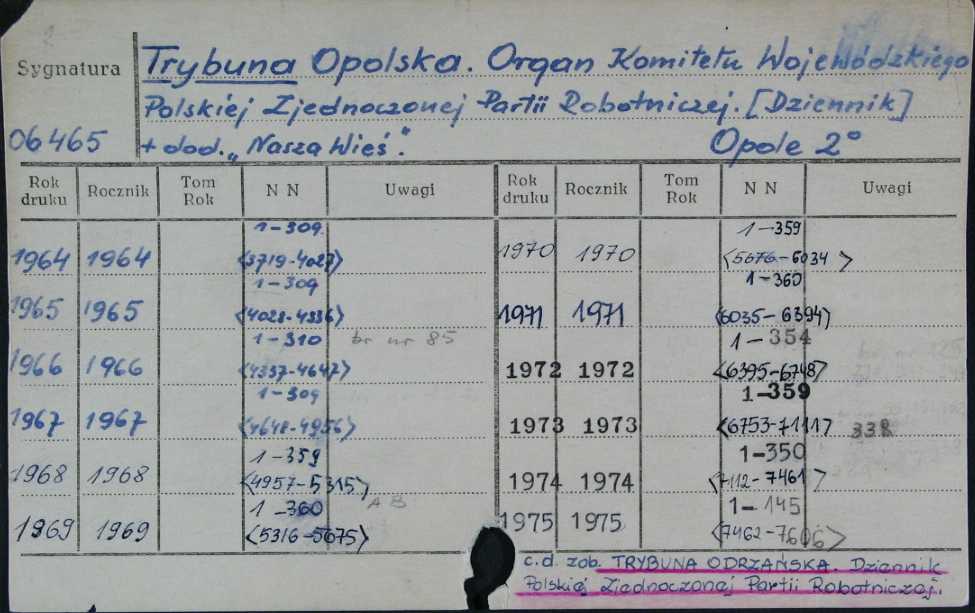 Sygnatura
Trybuna Opolska. Organ Komitetu Wojewódzkiego
Polskiej Zjednoczonej Partii Robotniczej. [Dziennik]
06465 + dod. „Nasza Wieś". Opole 2°
Rok druku Rocznik Tom Rok N N Uwagi Rok druku Rocznik Tom Rok N N Uwagi
1-309 1-359
1964 1964 <3719-4027> 1970 1970 <5676-6034>
1-309 1-360
1965 1965 <4028-4336> 1971 1971 <6035-6394>
1-310 br nr 85 1-354
1966 1966 <4337-4647> 1972 1972 <6395-6748>
1-309 1-359
1967 1967 <4648-4956> 1973 1973 <6753-7111> 338
1-359 1-350
1968 1968 <4957-5315> 1974 1974 <7112-7461>
1-360 AB 1-145
1969 1969 <5316-5675> 1975 1975 <7462-7606>
c.d. zob. TRYBUNA ODRZAŃSKA. Dziennik
Polskiej Zjednoczonej Partii Robotniczej.